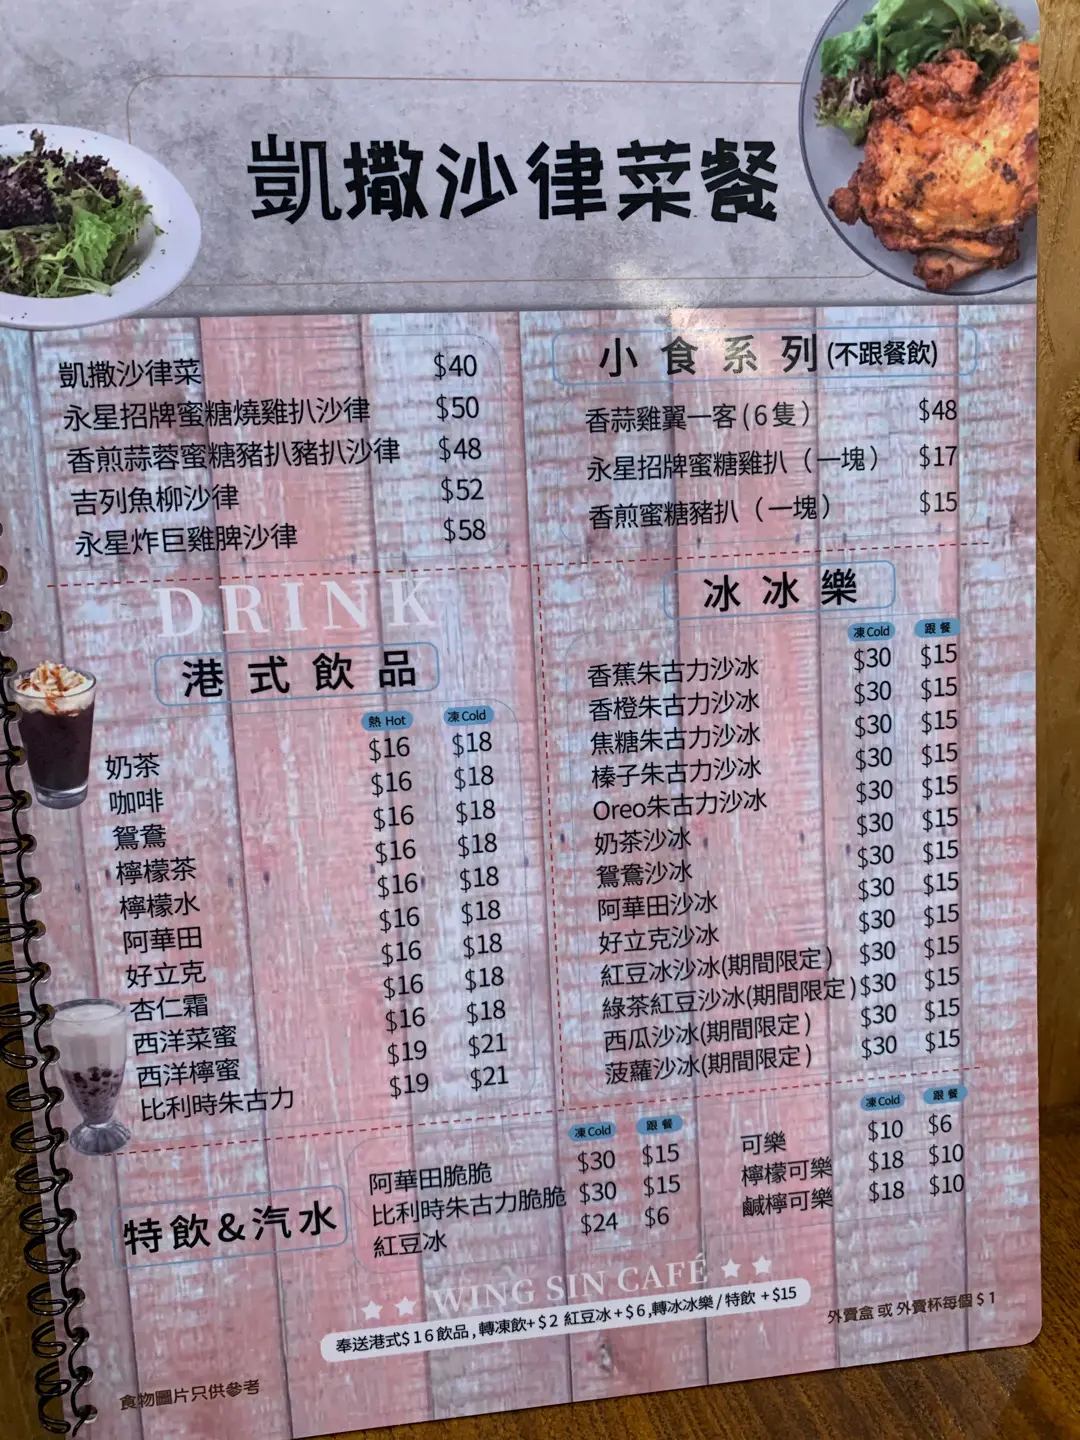 凱撒沙律菜餐
凱撒沙律菜 $40
永星招牌蜜糖燒雞扒沙律 $50
香煎蒜蓉蜜糖豬扒豬扒沙律 $48
吉列魚柳沙律 $52
永星炸巨雞脾沙律 $58
小食系列(不跟餐飲)
香蒜雞翼一客(6隻) $48
永星招牌蜜糖雞扒（一塊） $17
香煎蜜糖豬扒（一塊） $15
DRINK
港式飲品
熱 Hot 凍 Cold
奶茶 $16 $18
咖啡 $16 $18
鴛鴦 $16 $18
檸檬茶 $16 $18
檸檬水 $16 $18
阿華田 $16 $18
好立克 $16 $18
杏仁霜 $16 $18
西洋菜蜜 $16 $18
西洋檸蜜 $19 $21
比利時朱古力 $19 $21
冰冰樂
凍 Cold 跟餐
香蕉朱古力沙冰 $30 $15
香橙朱古力沙冰 $30 $15
焦糖朱古力沙冰 $30 $15
榛子朱古力沙冰 $30 $15
Oreo朱古力沙冰 $30 $15
奶茶沙冰 $30 $15
鴛鴦沙冰 $30 $15
阿華田沙冰 $30 $15
好立克沙冰 $30 $15
紅豆冰沙冰(期間限定) $30 $15
綠茶紅豆沙冰(期間限定) $30 $15
西瓜沙冰(期間限定) $30 $15
菠蘿沙冰(期間限定) $30 $15
特飲&汽水
凍 Cold 跟餐
阿華田脆脆 $30 $15
比利時朱古力脆脆 $30 $15
紅豆冰 $24 $6
凍 Cold 跟餐
可樂 $10 $6
檸檬可樂 $18 $10
鹹檸可樂 $18 $10
WING SIN CAFÉ
奉送港式$16飲品,轉凍飲+$2 紅豆冰+$6,轉冰冰樂/特飲 +$15
外賣盒 或 外賣杯每個 $1
食物圖片只供參考